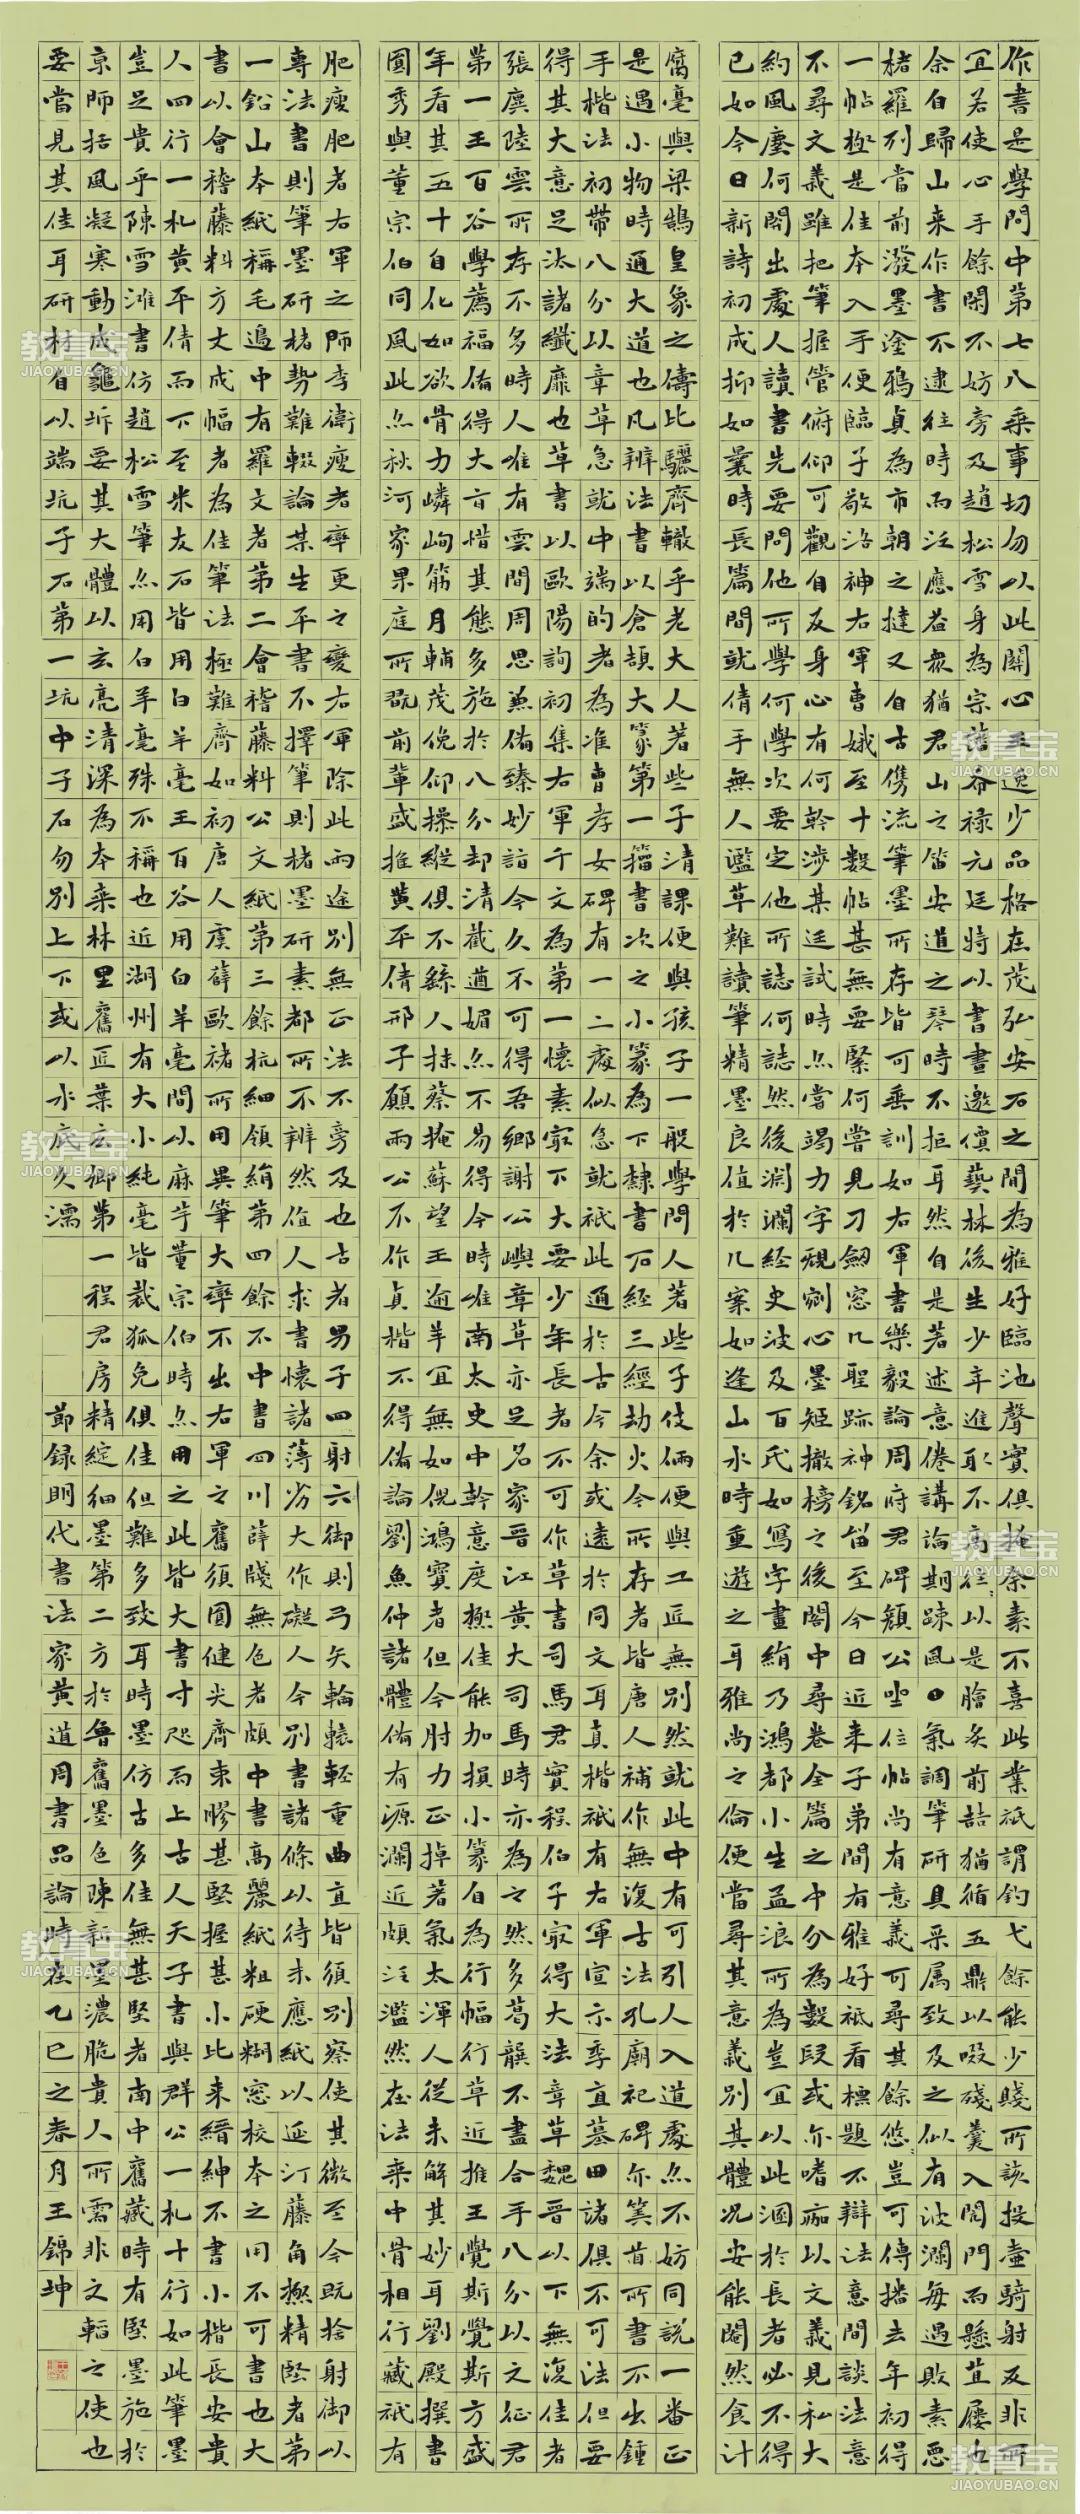 作書是學問中第七八乘事切勿以此關心王逸少品格在茂弘安石之間為雅好臨池聲實俱掩余素不喜此業祇謂釣弋餘能少賤所該投壺騎射及非所
宜若使心手餘閑不妨旁及趙松雪身為宗蕃爷禄元廷特以書書邀償藝林後生少年進取不高徑以是膾炙前喆猶循五鼎以啜殘羹入閱門而懸苴屨也
余自歸山来作書不逮往時而泛應益衆猶君山之笛安道之琴時不拒耳然自是著述意倦講論期踈風日氣調筆研具采属致及之似有波瀾每遇敗素惡
楮羅列當前潑墨塗鴉貞為市朝之撻又自古雋流筆墨所存皆可垂訓如右軍書樂毅論周府君碑顏公坐位帖尚有意義可尋其餘悠豈可傳播去年初得
一帖極是佳本入手便臨子敬洛神右軍曹娥至十數帖甚無要緊何嘗見刀劒窓几聖跡神銘留至今日近来子弟間有雅好祗看標題不辯法意間談法意
不尋文義雖把筆握管俯仰可觀自反身心有何幹涉某廷試時點嘗竭力字視劌心墨矩撤榜之後閣中尋卷全篇之中分為數段或亦嗜痂以文義見私大
約風塵何開出處人讀書先要問他所學何學次要定他所誌何誌然後淵瀾經史波及百氏如寫字畫絹乃鴻都小生孟浪所為豈宜以此溷於長者必不得
已如今日新詩初成抑如曩時長篇間就倩手無人濫草難讀筆精墨良值於几案如逢山水時重遊之耳雅尚之倫便當尋其意義別其體況安能闊然食計
腐毫與梁鵠皇象之儔比驪齊轍乎老大人著些子清課便與孩子一般學問人著些子伎倆便與工匠無別然就此中有可引人入道處點不妨同說一番正
是遇小物時通大道也凡辨法書以倉頡大篆第一籀書次之小篆為下隸書石經三經劫火今所存者皆唐人補作無復古法孔廟祀碑亦箕肯所書不出鍾
手楷法初帶八分以章草急就中端的者為准曹孝女碑有一二處似急就祇此通於古今余或遠於同文耳真楷祇有右軍宣示季直墓田諸俱不可法但要
得其大意足汰諸纖靡也草書以歐陽詢初集右軍千文為第一懷素冣下大要少年長者不可作草書司馬君實程伯子冣得大法章草魏晋以下無復佳者
張廙陸雲所存不多時人唯有雲間周思兼偹臻妙詣今久不可得吾鄉謝公嶼章草亦足名家晋江黄大司馬時亦為之然多葛龔不盡合手八分以之征君
第一王百谷學薦福偹得大旨惜其態多施於八分却清截遒媚點不易得今時唯南太史中幹意度極佳能加損小篆自為行幅行草近推王覺斯覺斯方盛
年看其五十自化如欲骨力嶙峋筋月輔茂俛仰操縱俱不繇人抹蔡掩蘇望王逾羊宜無如倪鴻寶者但今肘力正掉著氣太渾人從未解其妙耳劉殿撰書
圓秀與董宗伯同風此點秋河家果庭所既前輩盛推黄平倩邢子願雨公不作真楷不得偹論劉魚仲諸體偹有源瀾近頗泛濫然在法乘中骨相行藏祇有
肥瘦肥者右軍之師李衛瘦者率更之變右軍除此兩途別無正法不旁及也古者男子四射六御則弓矢輪轅輊重曲直皆須別察使其微至今既捨射御以
專法書則筆墨研楮勢難輟論某生平書不擇筆則楮墨研素都所不辨然值人求書懷諸薄劣大作礙人今別書諸條以待未應紙以延汀藤角極精堅者第
一鉛山本紙稱毛邉中有羅文者第二會稽藤料公文紙第三餘杭細領絹第四餘不中書四川薛牋無色者頗中書高麗紙粗硬糊窓校本之用不可書也大
書以會稽藤料方丈成幅者為佳筆法極難齊如初唐人虞薛歐褚所用異筆大率不出右軍之舊須圓健尖齊束膠甚堅握甚小比来縉紳不書小楷長安貴
人四行一札黄平倩而下至米友石皆用白羊毫王百谷用白羊毫間以麻苧董宗伯時點用之此皆大書寸咫而上古人天子書與群公一札十行如此筆墨
豈足貴乎陳雪灘書仿趙松雪筆點用白羊毫殊不稱也近湖州有大小純毫皆裁狐兔俱佳但難多致耳時墨仿古多佳無甚堅者南中舊藏時有堅墨施於
京師括風凝寒動成龜坼要其大體以玄亮清深為本乘林里舊匠葉玄卿第一程君房精綻細墨第二方於魯舊墨色陳新墨濃脆貴人所需非之輜之使也
要當見其佳耳研材自以端坑子石第一坑中子石勿別上下或以水底火濡
節録明代書法家黄道周書品論時在乙巳之春月王錦坤
教育宝
JIAOYUBAO.CN
教育宝
JIAOYUBAO.CN
教育宝
JIAOYUBAO.CN
教育宝
JIAOYUBAO.CN
教育宝
JIAOYUBAO.CN
教育宝
JIAOYUBAO.CN